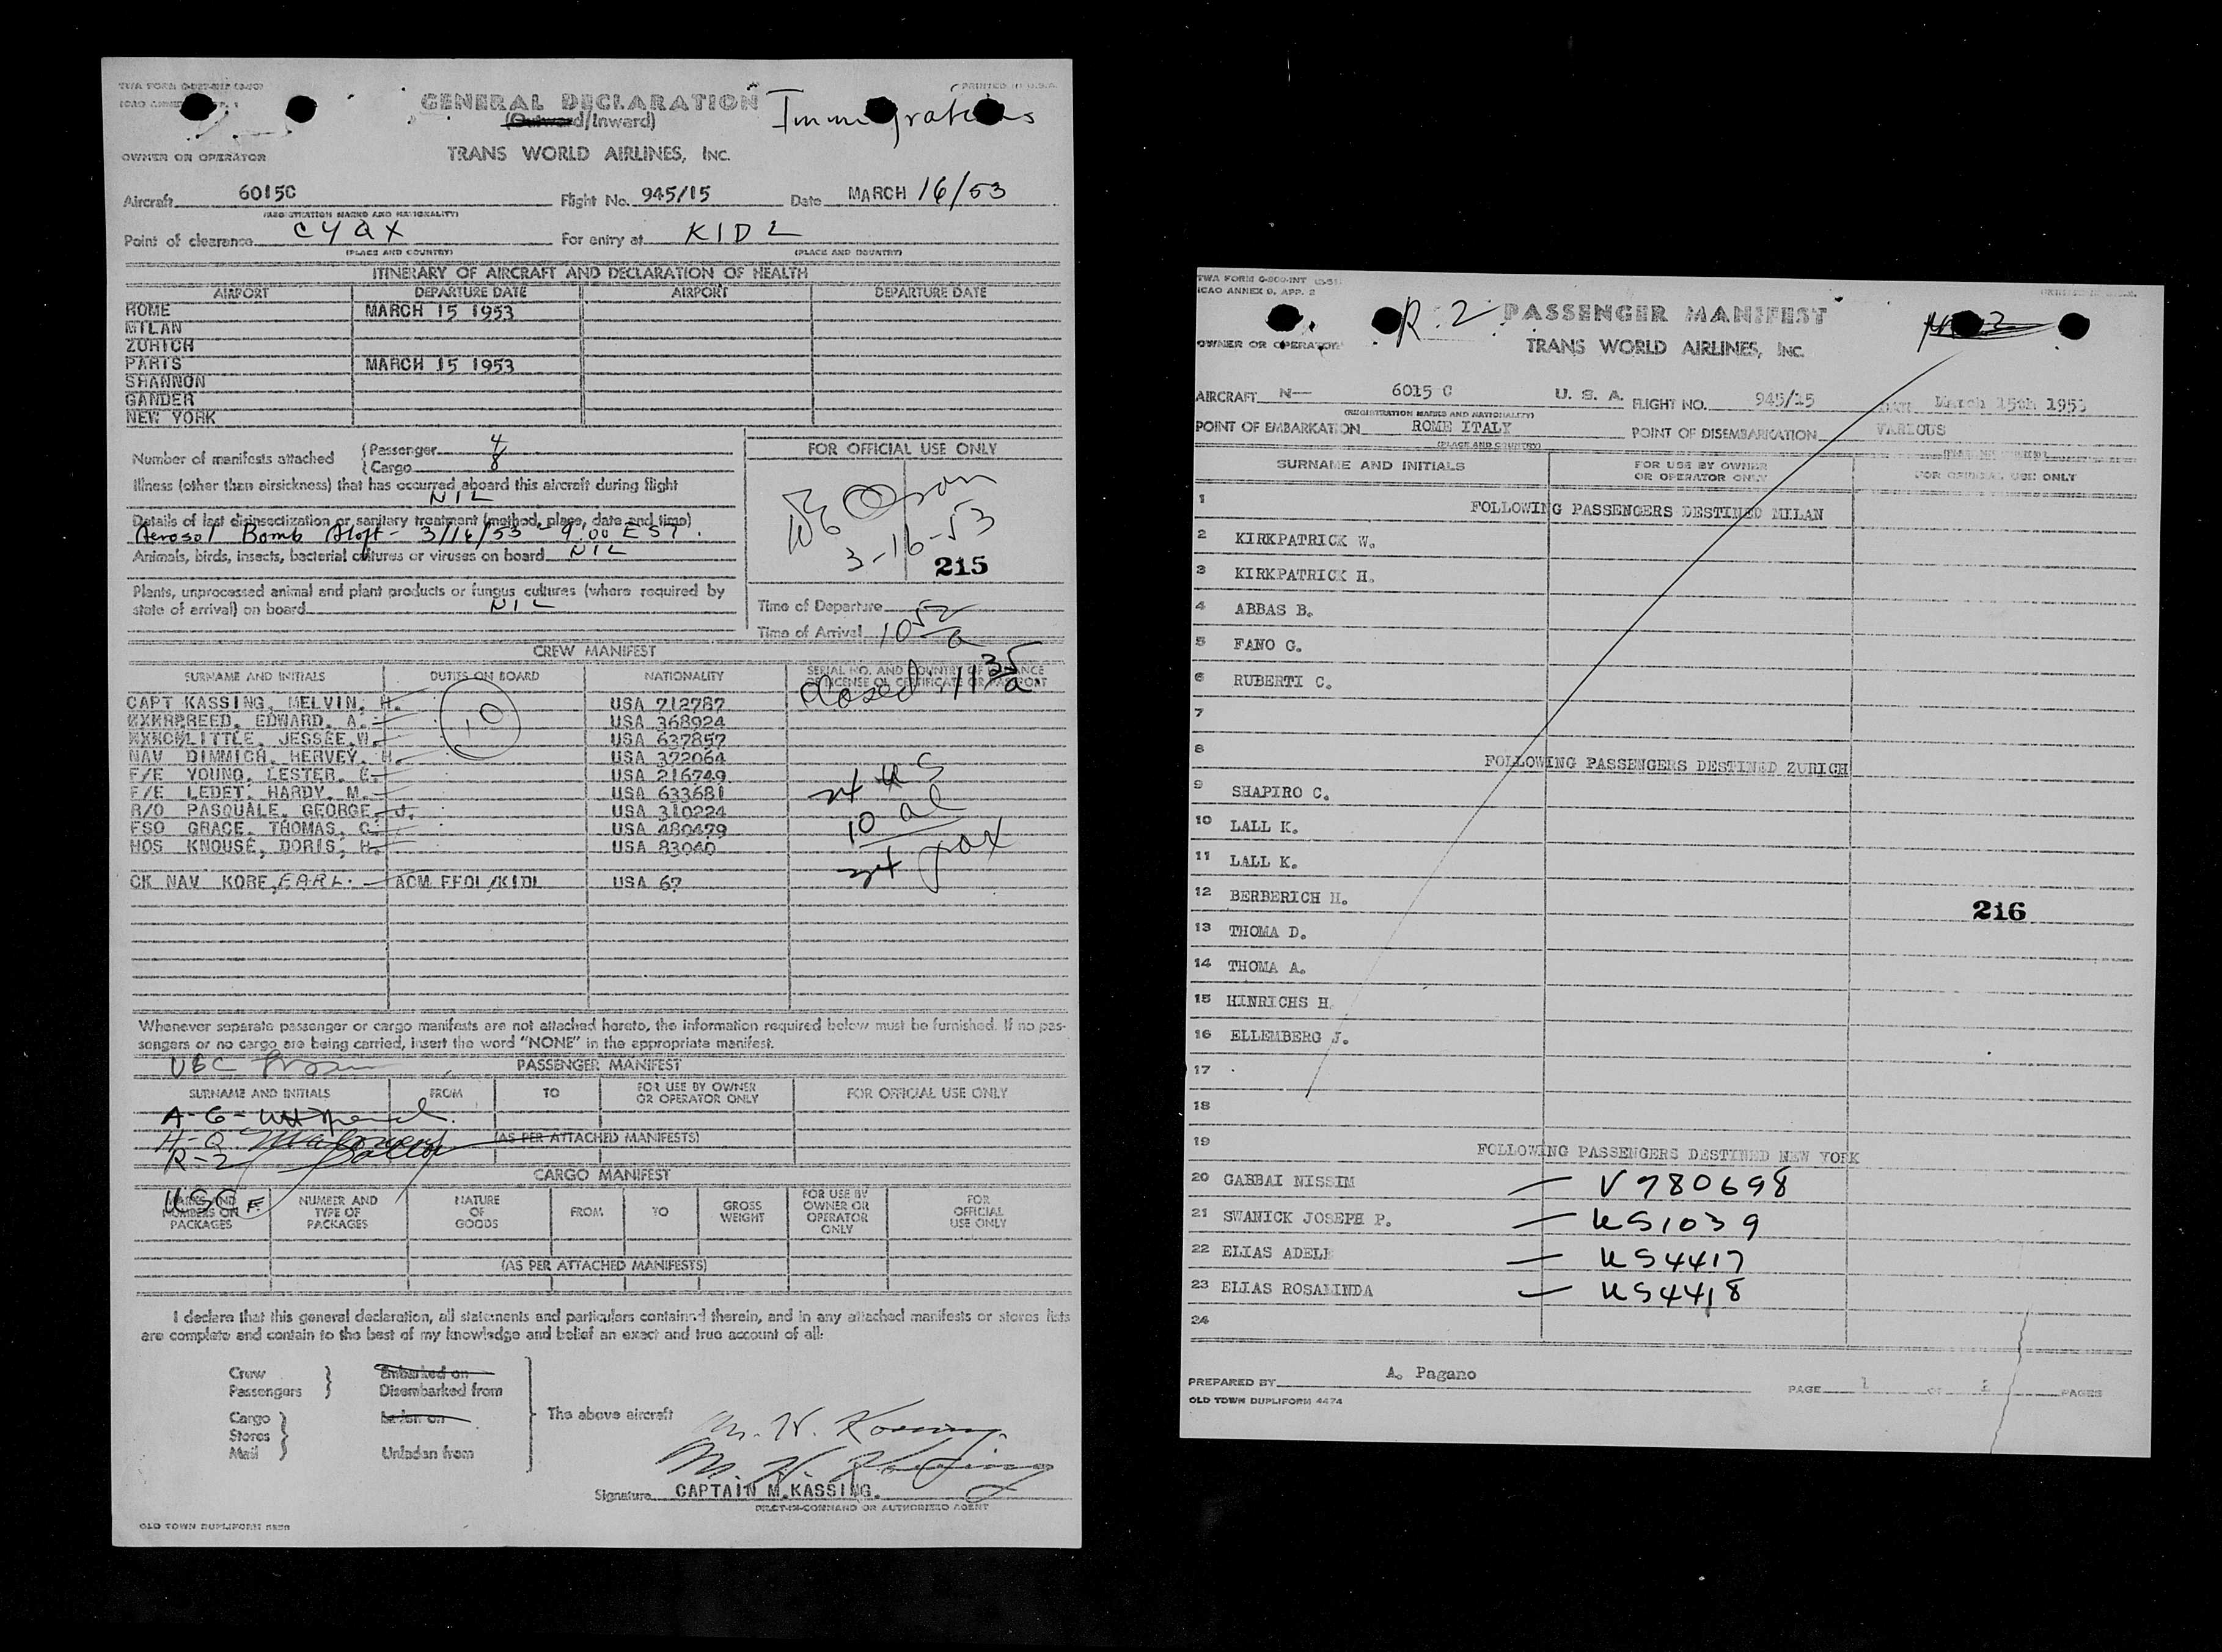 ICAO ANNEX
PRINTED IN U.S.A.
GENERAL DECLARATION
Immigrations
(Outward/Inward)
OWNER OR OPERATOR
TRANS WORLD AIRLINES, INC.
Aircraft 6015C Flight No. 945/15 Date MARCH 16/53
(REGISTRATION MARKS AND NATIONALITY)
Point of clearance CYQX For entry at KIDL
(PLACE AND COUNTRY) (PLACE AND COUNTRY)
ITINERARY OF AIRCRAFT AND DECLARATION OF HEALTH
AIRPORT DEPARTURE DATE AIRPORT DEPARTURE DATE
ROME MARCH 15 1953
MILAN
ZURICH
PARIS MARCH 15 1953
SHANNON
GANDER
NEW YORK
Number of manifests attached
Passenger 4
Cargo 8
Illness (other than airsickness) that has occurred aboard this aircraft during flight
NIL
Details of last disinsectization or sanitary treatment (method, place, date and time)
Aerosol Bomb Aloft - 3/16/53 - 9:00 EST.
Animals, birds, insects, bacterial cultures or viruses on board NIL
Plants, unprocessed animal and plant products or fungus cultures (where required by
state of arrival) on board NIL
FOR OFFICIAL USE ONLY
3-16-53
215
Time of Departure
Time of Arrival 10 52/a
CREW MANIFEST
Closed: 11 35 a.
SURNAME AND INITIALS DUTIES ON BOARD NATIONALITY SERIAL NO. AND COUNTRY OF ISSUANCE
OF LICENSE OR CERTIFICATE OR PASSPORT
10
CAPT KASSING, MELVIN, H. USA 712787
REED, EDWARD, A. USA 368924
LITTLE, JESSEE, W. USA 637857
NAV DIMMICH, HERVEY, H. USA 372064
F/E YOUNG, LESTER, E. USA 216749
F/E LEDET, HARDY, M. USA 633681
R/O PASQUALE, GEORGE, J. USA 310224
FSO GRACE, THOMAS, C. USA 480479
HOS KNOUSE, DORIS, H. USA 83040
CK NAV KORE, EARL. ACM EFOL/KIDL USA 67
US
10 al
pax
Whenever separate passenger or cargo manifests are not attached hereto, the information required below must be furnished. If no pas-
sengers or no cargo are being carried, insert the word "NONE" in the appropriate manifest.
PASSENGER MANIFEST
SURNAME AND INITIALS FROM TO FOR USE BY OWNER
OR OPERATOR ONLY FOR OFFICIAL USE ONLY
A-G-
H-Q
R-Z
(AS PER ATTACHED MANIFESTS)
CARGO MANIFEST
MARKS AND
NUMBERS ON
PACKAGES
NUMBER AND
TYPE OF
PACKAGES
NATURE
OF
GOODS
FROM
TO
GROSS
WEIGHT
FOR USE BY
OWNER OR
OPERATOR
ONLY
FOR
OFFICIAL
USE ONLY
(AS PER ATTACHED MANIFESTS)
I declare that this general declaration, all statements and particulars contained therein, and in any attached manifests or stores lists
are complete and contain to the best of my knowledge and belief an exact and true account of all:
Crew
Passengers
Embarked on
Disembarked from
Cargo
Stores
Mail
Laden on
Unladen from
The above aircraft
M. H. Kassing
M. H. Kassing
Signature CAPTAIN M.KASSING.
PILOT-IN-COMMAND OR AUTHORIZED AGENT
OLD TOWN DUPLIFORM
TWA FORM
ICAO ANNEX 9, APP. 2
R.2 PASSENGER MANIFEST
OWNER OR OPERATOR
TRANS WORLD AIRLINES, INC.
AIRCRAFT N-- 6015 C U. S. A. FLIGHT NO. 945/15 DATE March 15th 1953
(REGISTRATION MARKS AND NATIONALITY)
POINT OF EMBARKATION ROME ITALY POINT OF DISEMBARKATION VARIOUS
(PLACE AND COUNTRY)
SURNAME AND INITIALS FOR USE BY OWNER
OR OPERATOR ONLY FOR OFFICIAL USE ONLY
1 FOLLOWING PASSENGERS DESTINED MILAN
2 KIRKPATRICK W.
3 KIRKPATRICK H.
4 ABBAS B.
5 FANO G.
6 RUBERTI C.
7
8 FOLLOWING PASSENGERS DESTINED ZURICH
9 SHAPIRO C.
10 LALL K.
11 LALL K.
12 BERBERICH H.
216
13 THOMA D.
14 THOMA A.
15 HINRICHS H.
16 ELLEMBERG J.
17
18
19 FOLLOWING PASSENGERS DESTINED NEW YORK
20 GABBAI NISSIM — V780698
21 SWANICK JOSEPH P. — US1039
22 ELIAS ADELE — US4417
23 ELIAS ROSALINDA — US4418
24
PREPARED BY A. Pagano PAGE 1 OF PAGES
OLD TOWN DUPLIFORM 4474